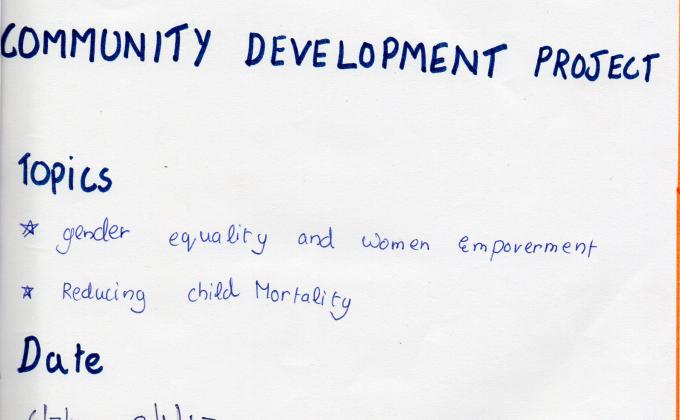 COMMUNITY DEVELOPMENT PROJECT
Topics
* gender equality and women Empoverment
* Reducing child Mortality
Date